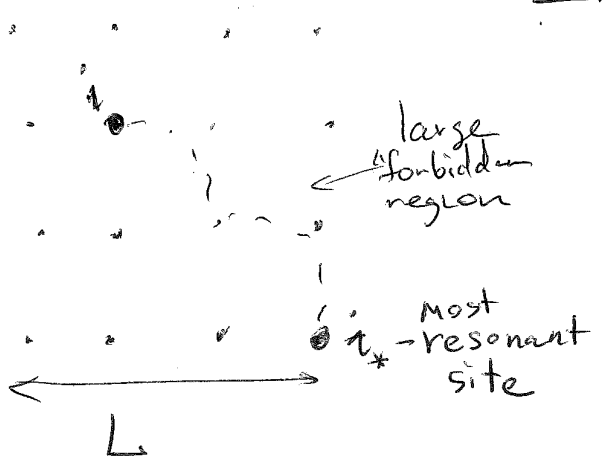 i
large
"forbidden
region
i* - most
resonant
site
L